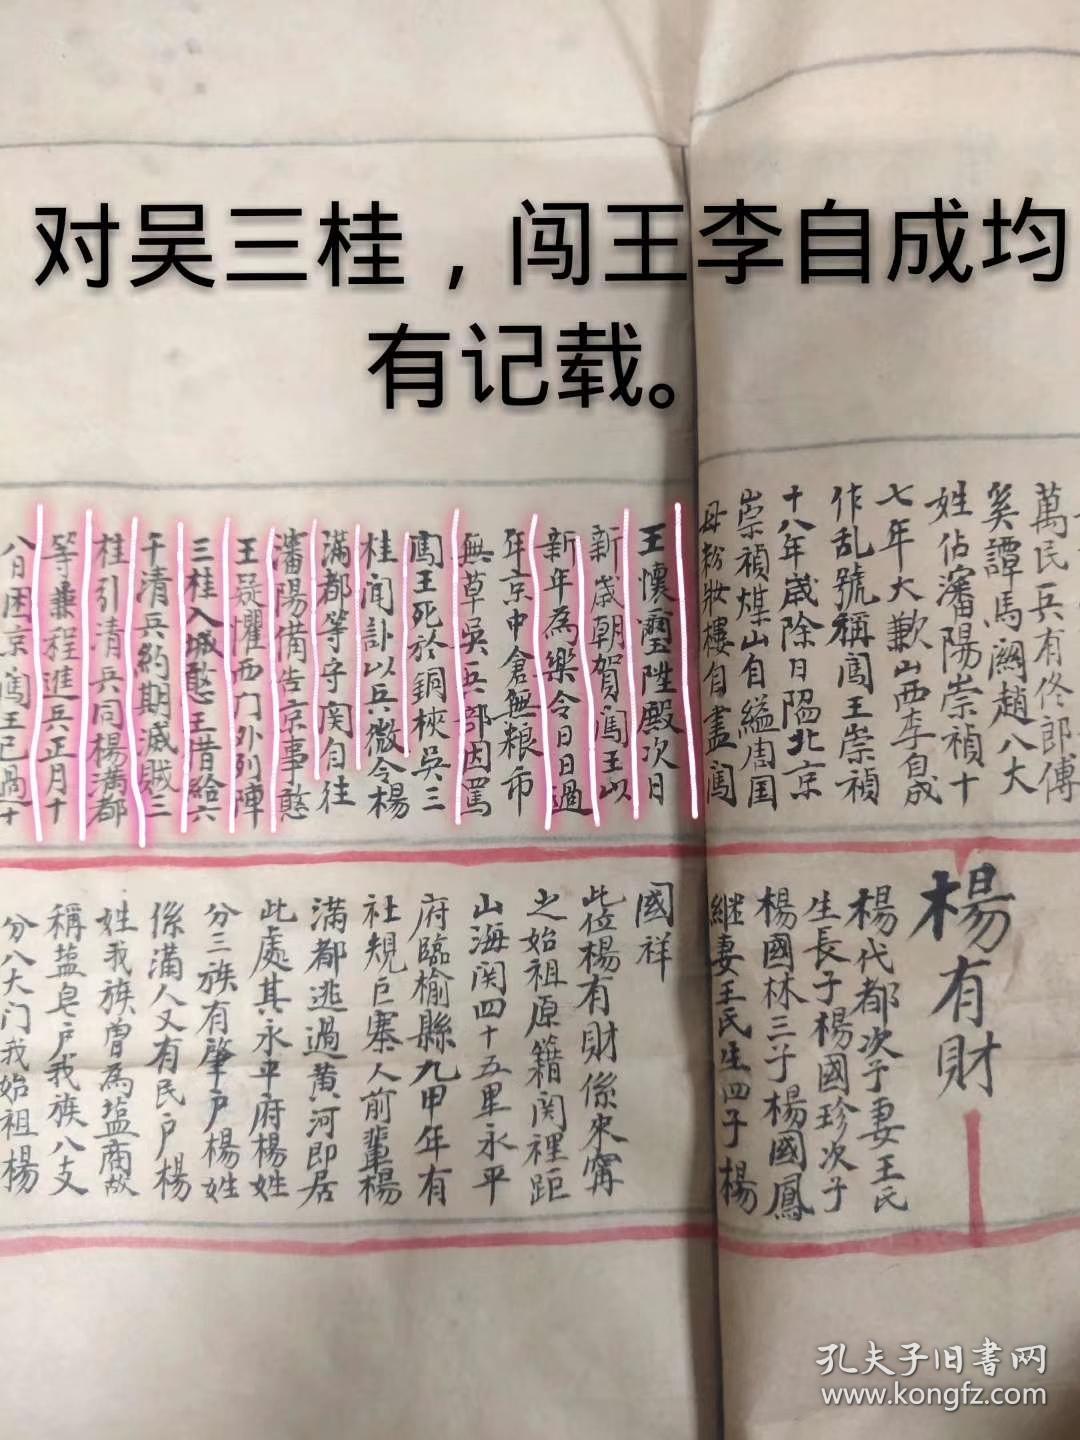 对吴三桂，闯王李自成均
有记载。
萬民兵有佟郎傅
奚譚馬關趙八大
姓佔瀋陽崇禎十
七年大歉山西李自成
作乱號稱闖王崇禎
十八年歲除日陷北京
崇禎煤山自縊周国
母粉妝樓自盡闖
王懷璽陞殿次日
新歲朝賀闖王以
新年為樂令日日過
年京中倉無粮市
無草吳兵部因罵
闖王死於銅梜吳三
桂聞訃以兵激令楊
滿都等守関自往
瀋陽備告京事憨
王疑懼西门外列陣
三桂入城憨王借給六
千清兵約期滅賊三
桂引清兵同楊满都
等兼程進兵正月十
八日困京闖王已過十
楊有財
楊代都次子妻王氏
生長子楊國珍次子
楊國林三子楊國鳳
継妻王氏生四子楊
國祥
此位楊有財係來甯
之始祖原籍関裡距
山海関四十五里永平
府臨榆縣九甲年有
社規巨寨人前輩楊
满都逃過黄河即居
此處其永平府楊姓
分三族有肇户楊姓
係满人又有民户楊
姓我族曾為塩商故
稱塩皂户我族八支
分八大门我始祖楊
孔夫子旧書网
www.kongfz.com